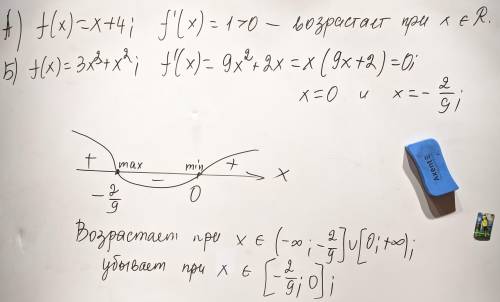 А) f(x)=x+4; f'(x)=1>0 – возрастает при x ∈ R.
Б) f(x)=3x³+x²; f'(x)=9x²+2x=x(9x+2)=0;
x=0 и x=-2/9;
+ max – min + x
-2/9 0
Возрастает при x ∈ (-∞; -2/9] ∪ [0; +∞);
убывает при x ∈ [-2/9; 0];
Axent